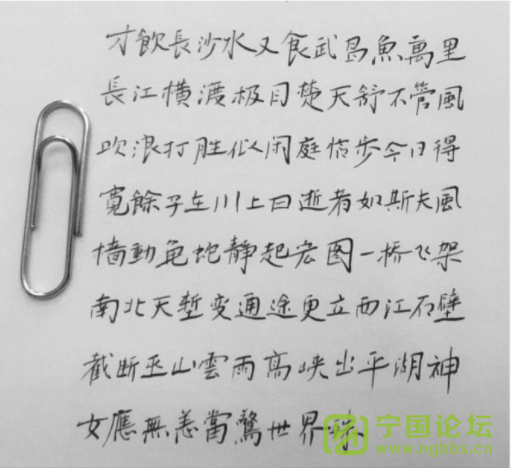 才飲長沙水又食武昌魚萬里
長江横渡极目楚天舒不管風
吹浪打胜似闲庭信步今日得
寬餘子在川上曰逝者如斯夫風
樯動龟蛇靜起宏图一桥飞架
南北天堑变通途更立西江石壁
截断巫山雲雨高峡出平湖神
女應無恙當驚世界殊
宁国论坛
www.ngbbs.cn